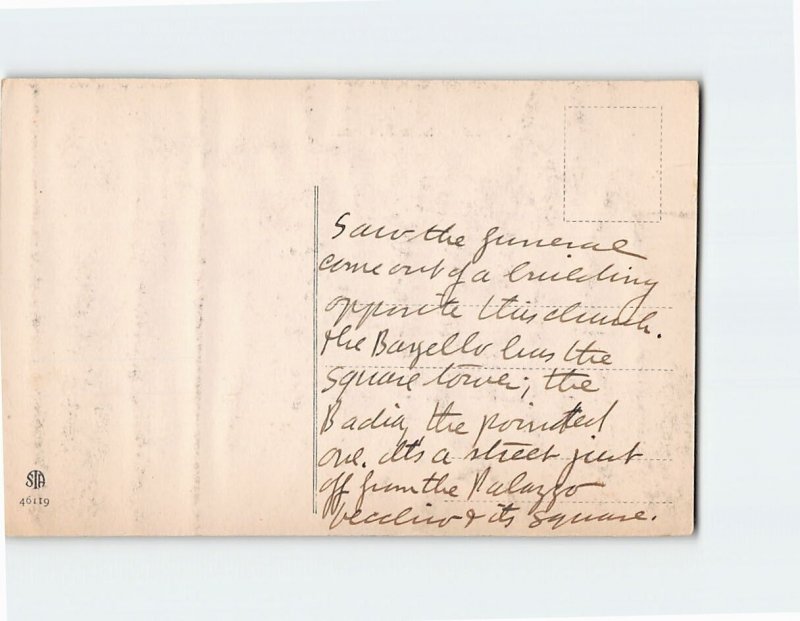 Saw the funeral
come out of a building
opposite this church.
The Bargello has the
square tower; the
Badia, the pointed
one. It's a street just
off from the Palazzo
Vecchio & its square.
STA
46119